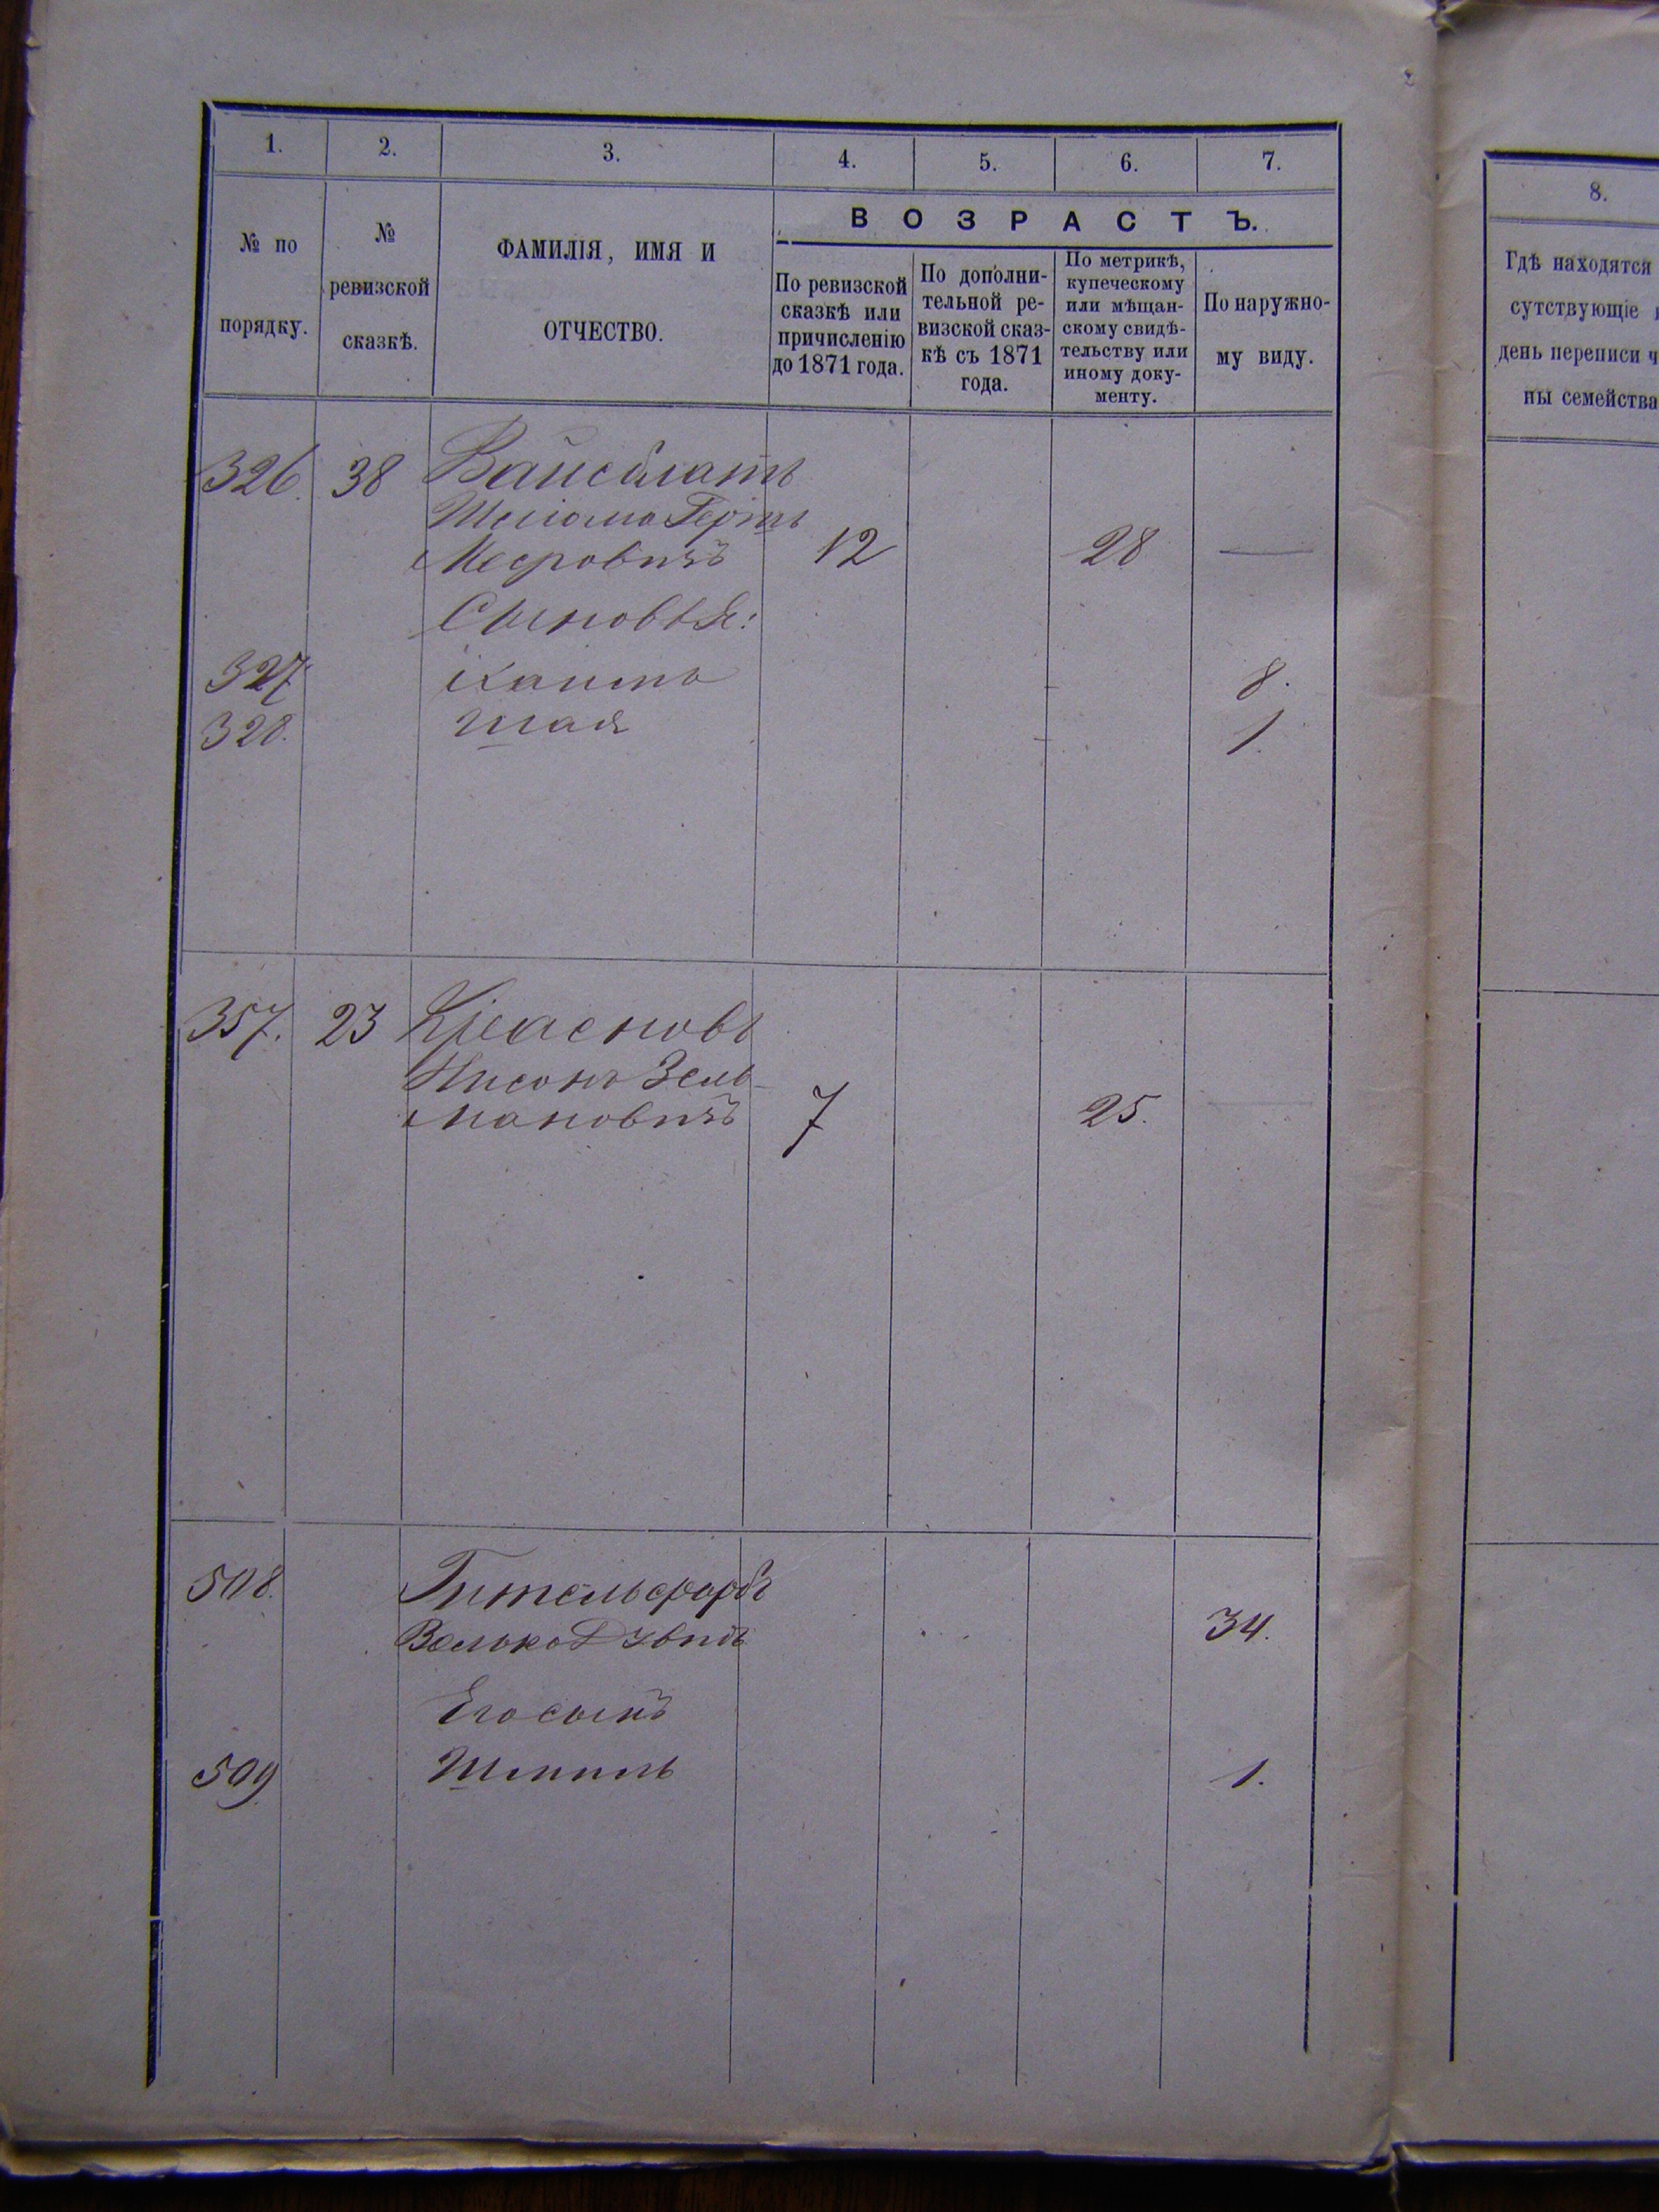 1. 2. 3. 4. 5. 6. 7.
№ по порядку.
№ ревизской сказкѣ.
ФАМИЛІЯ, ИМЯ И
ОТЧЕСТВО.
ВОЗРАСТЪ.
По ревизской
сказкѣ или
причисленію
до 1871 года.
По дополни-
тельной ре-
визской сказ-
кѣ съ 1871
года.
По метрикѣ,
купеческому
или мѣщан-
скому свидѣ-
тельству или
иному доку-
менту.
По наружно-
му виду.
326. 38 Вайсблатъ
Шліома Гершъ
Мееровичъ 12 28 —
Сыновья:
327. Хаимъ 8.
328. Шая 1.
357. 23 Красновъ
Нисонъ Зель-
мановичъ 7 25. —
508. Гительфарбъ
Волько 34.
Его сынъ
509. Шмиль 1.
8.
Гдѣ находятся
сутствующіе
день переписи ч
ны семейства